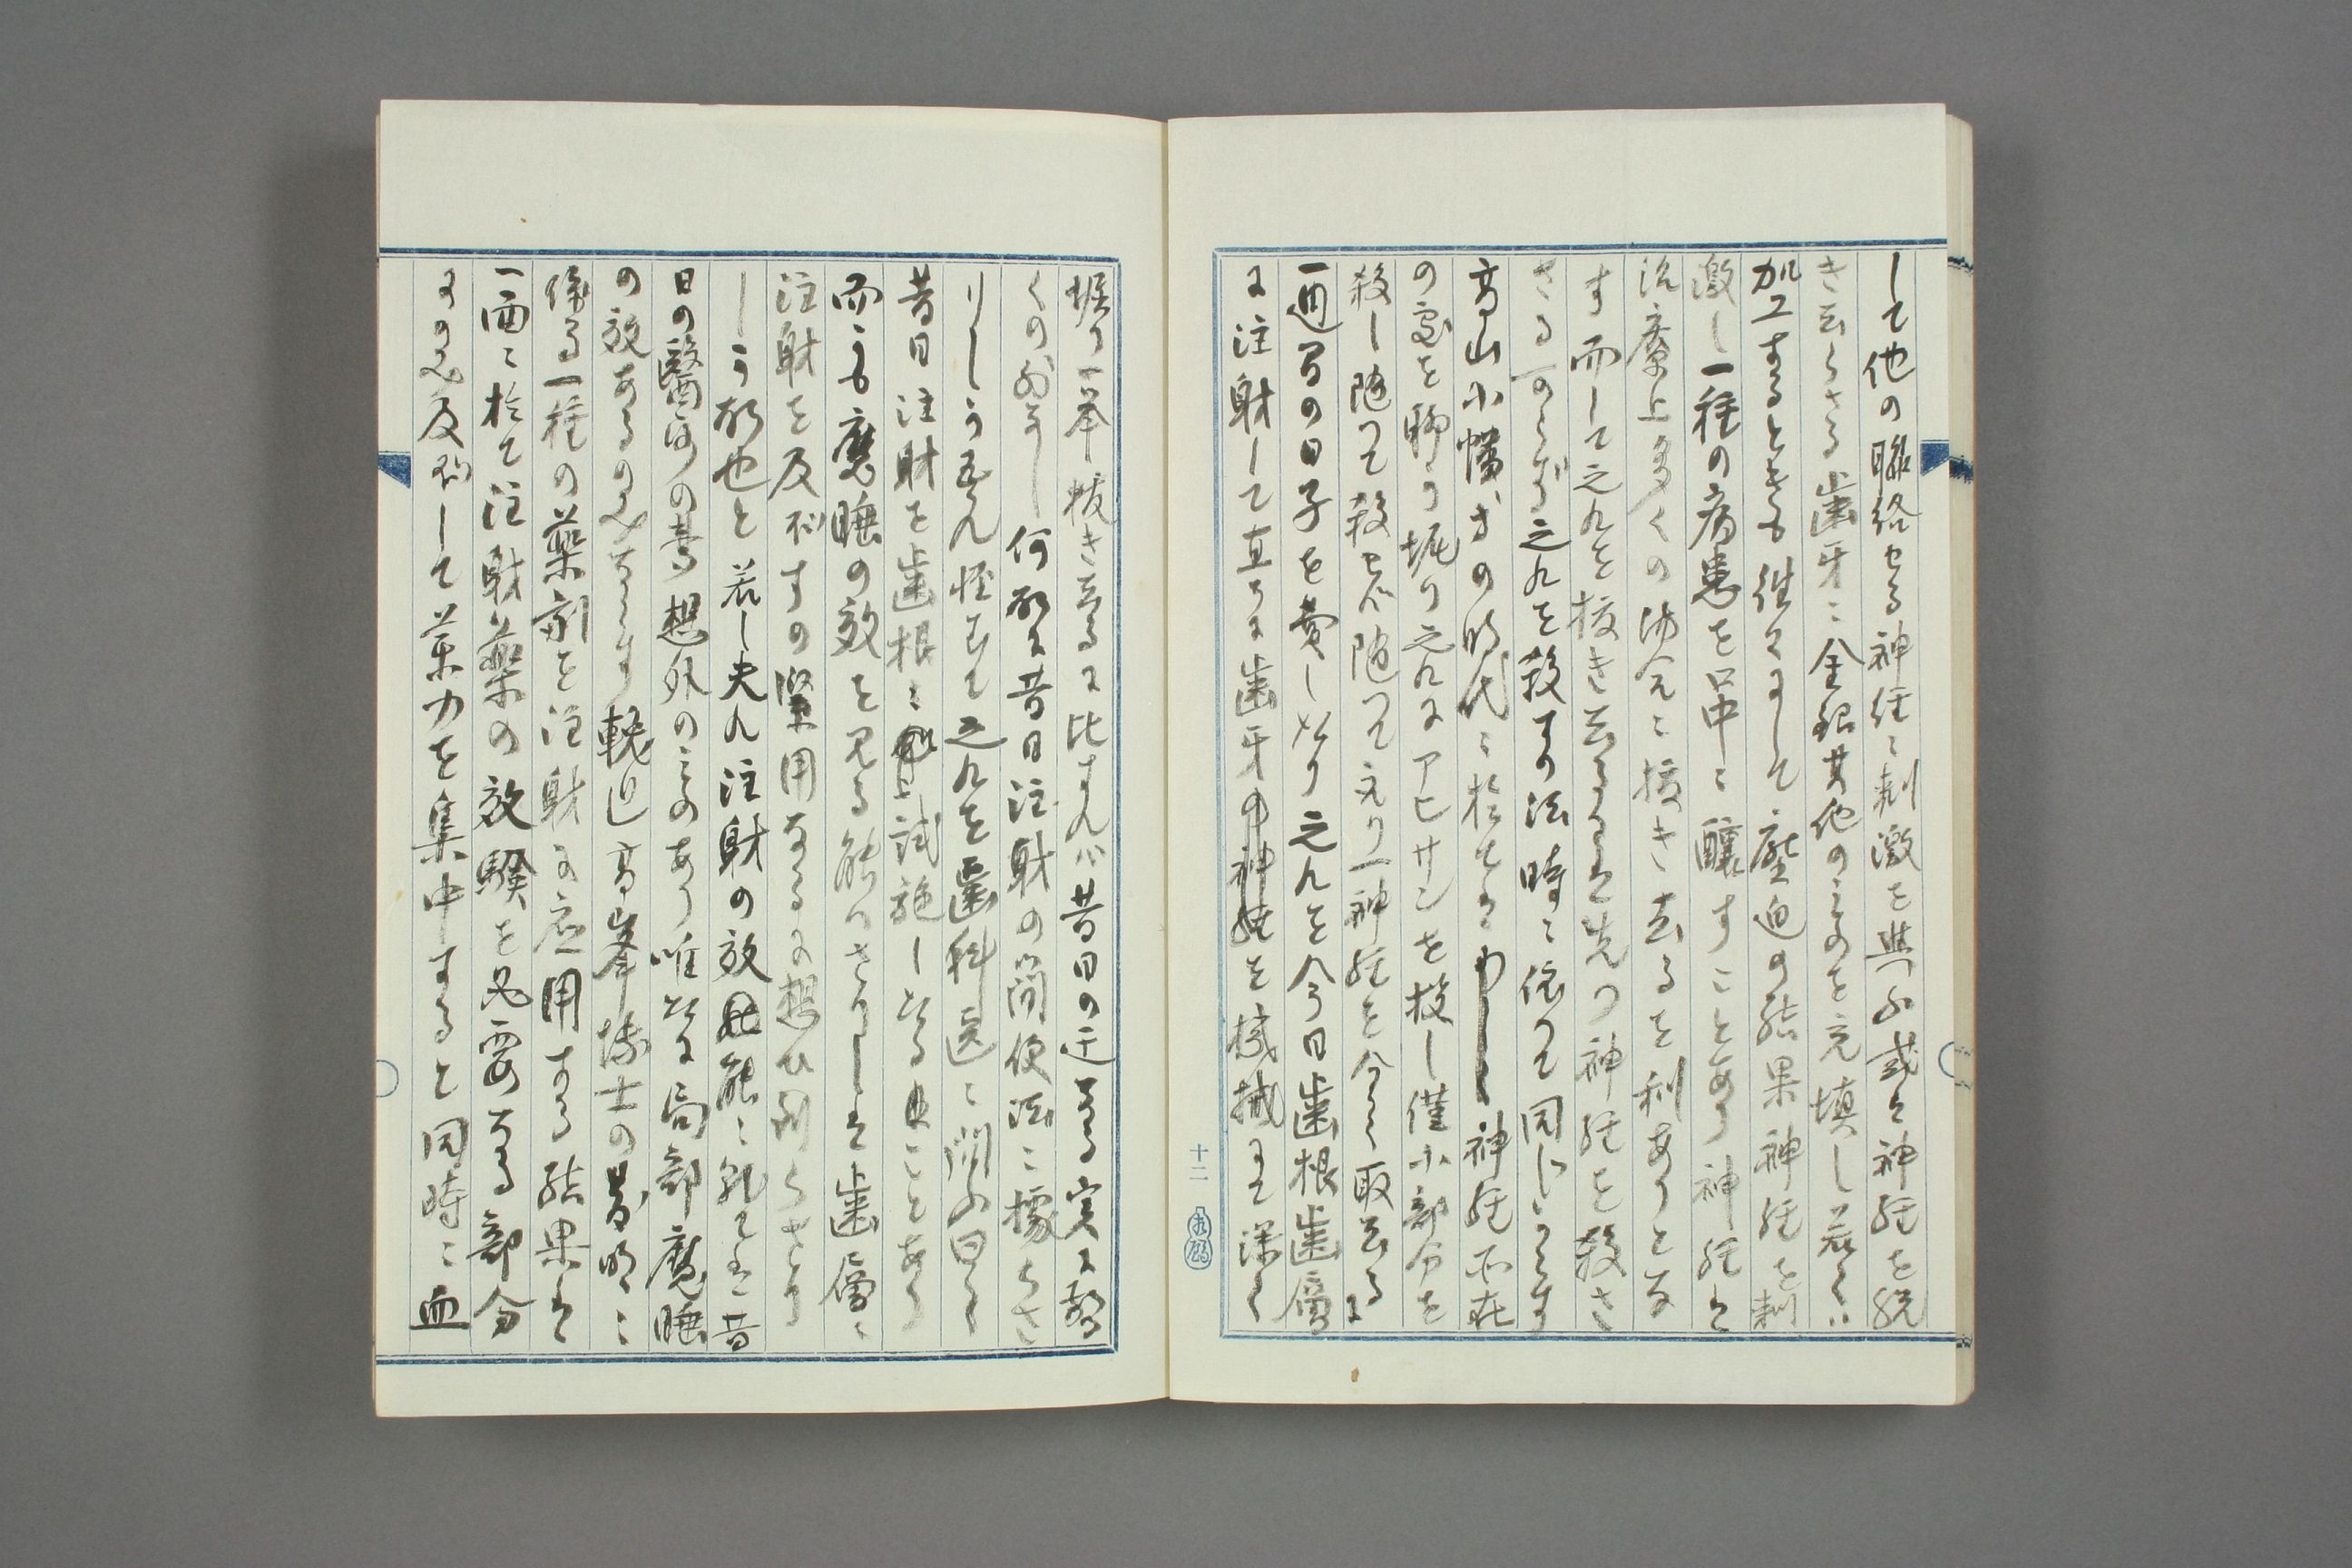 して他の聯絡せる神経に刺激を與ふ或は神経を脱
き去らさる歯牙に金銀其他のものを充填し若くハ
加工するときも往々にして壓迫の結果神経を刺
激し一種の病患を口中に醸すことあり神経は
治療上多くの場合に抜き去るを利ありとな
す而して之れを抜き去るには先つ神経を殺さ
さる可らず之れを殺すの法時に依つて同じからす
高山小幡等の時代に於ては神経所在
の家を聊か堀り之れにアヒサンを投し僅小部分を
殺し随つて殺せハ随つて元り一神経を全く取去るに
一週間の日子を費し如り之れを今日歯根歯齦
に注射して直ちに歯牙の神経を機械にて深く
十二
堀り一挙抜き去るに比すれハ昔日の迂なる実に驚
くの外なし何故に昔日注射の簡便法に據らさ
りしか吾れ怪むて之れを歯科医に問ふ曰く
昔日注射を歯根に試施したることあり
而かも麻睡の效を見る能はさりしは歯齦に
注射を及ぼすの緊用なるに想ひ到らさり
しか故也と若し夫れ注射の效能に就ては昔
日の醫師の夢想外のものあり唯たに局部麻睡
の效あるのみならす輓近高峯博士の發明に
係る一種の藥剤を注射に應用する結果は
一面に於て注射藥の效験を必要なる部分
にのみ及ほして藥力を集中すると同時に血